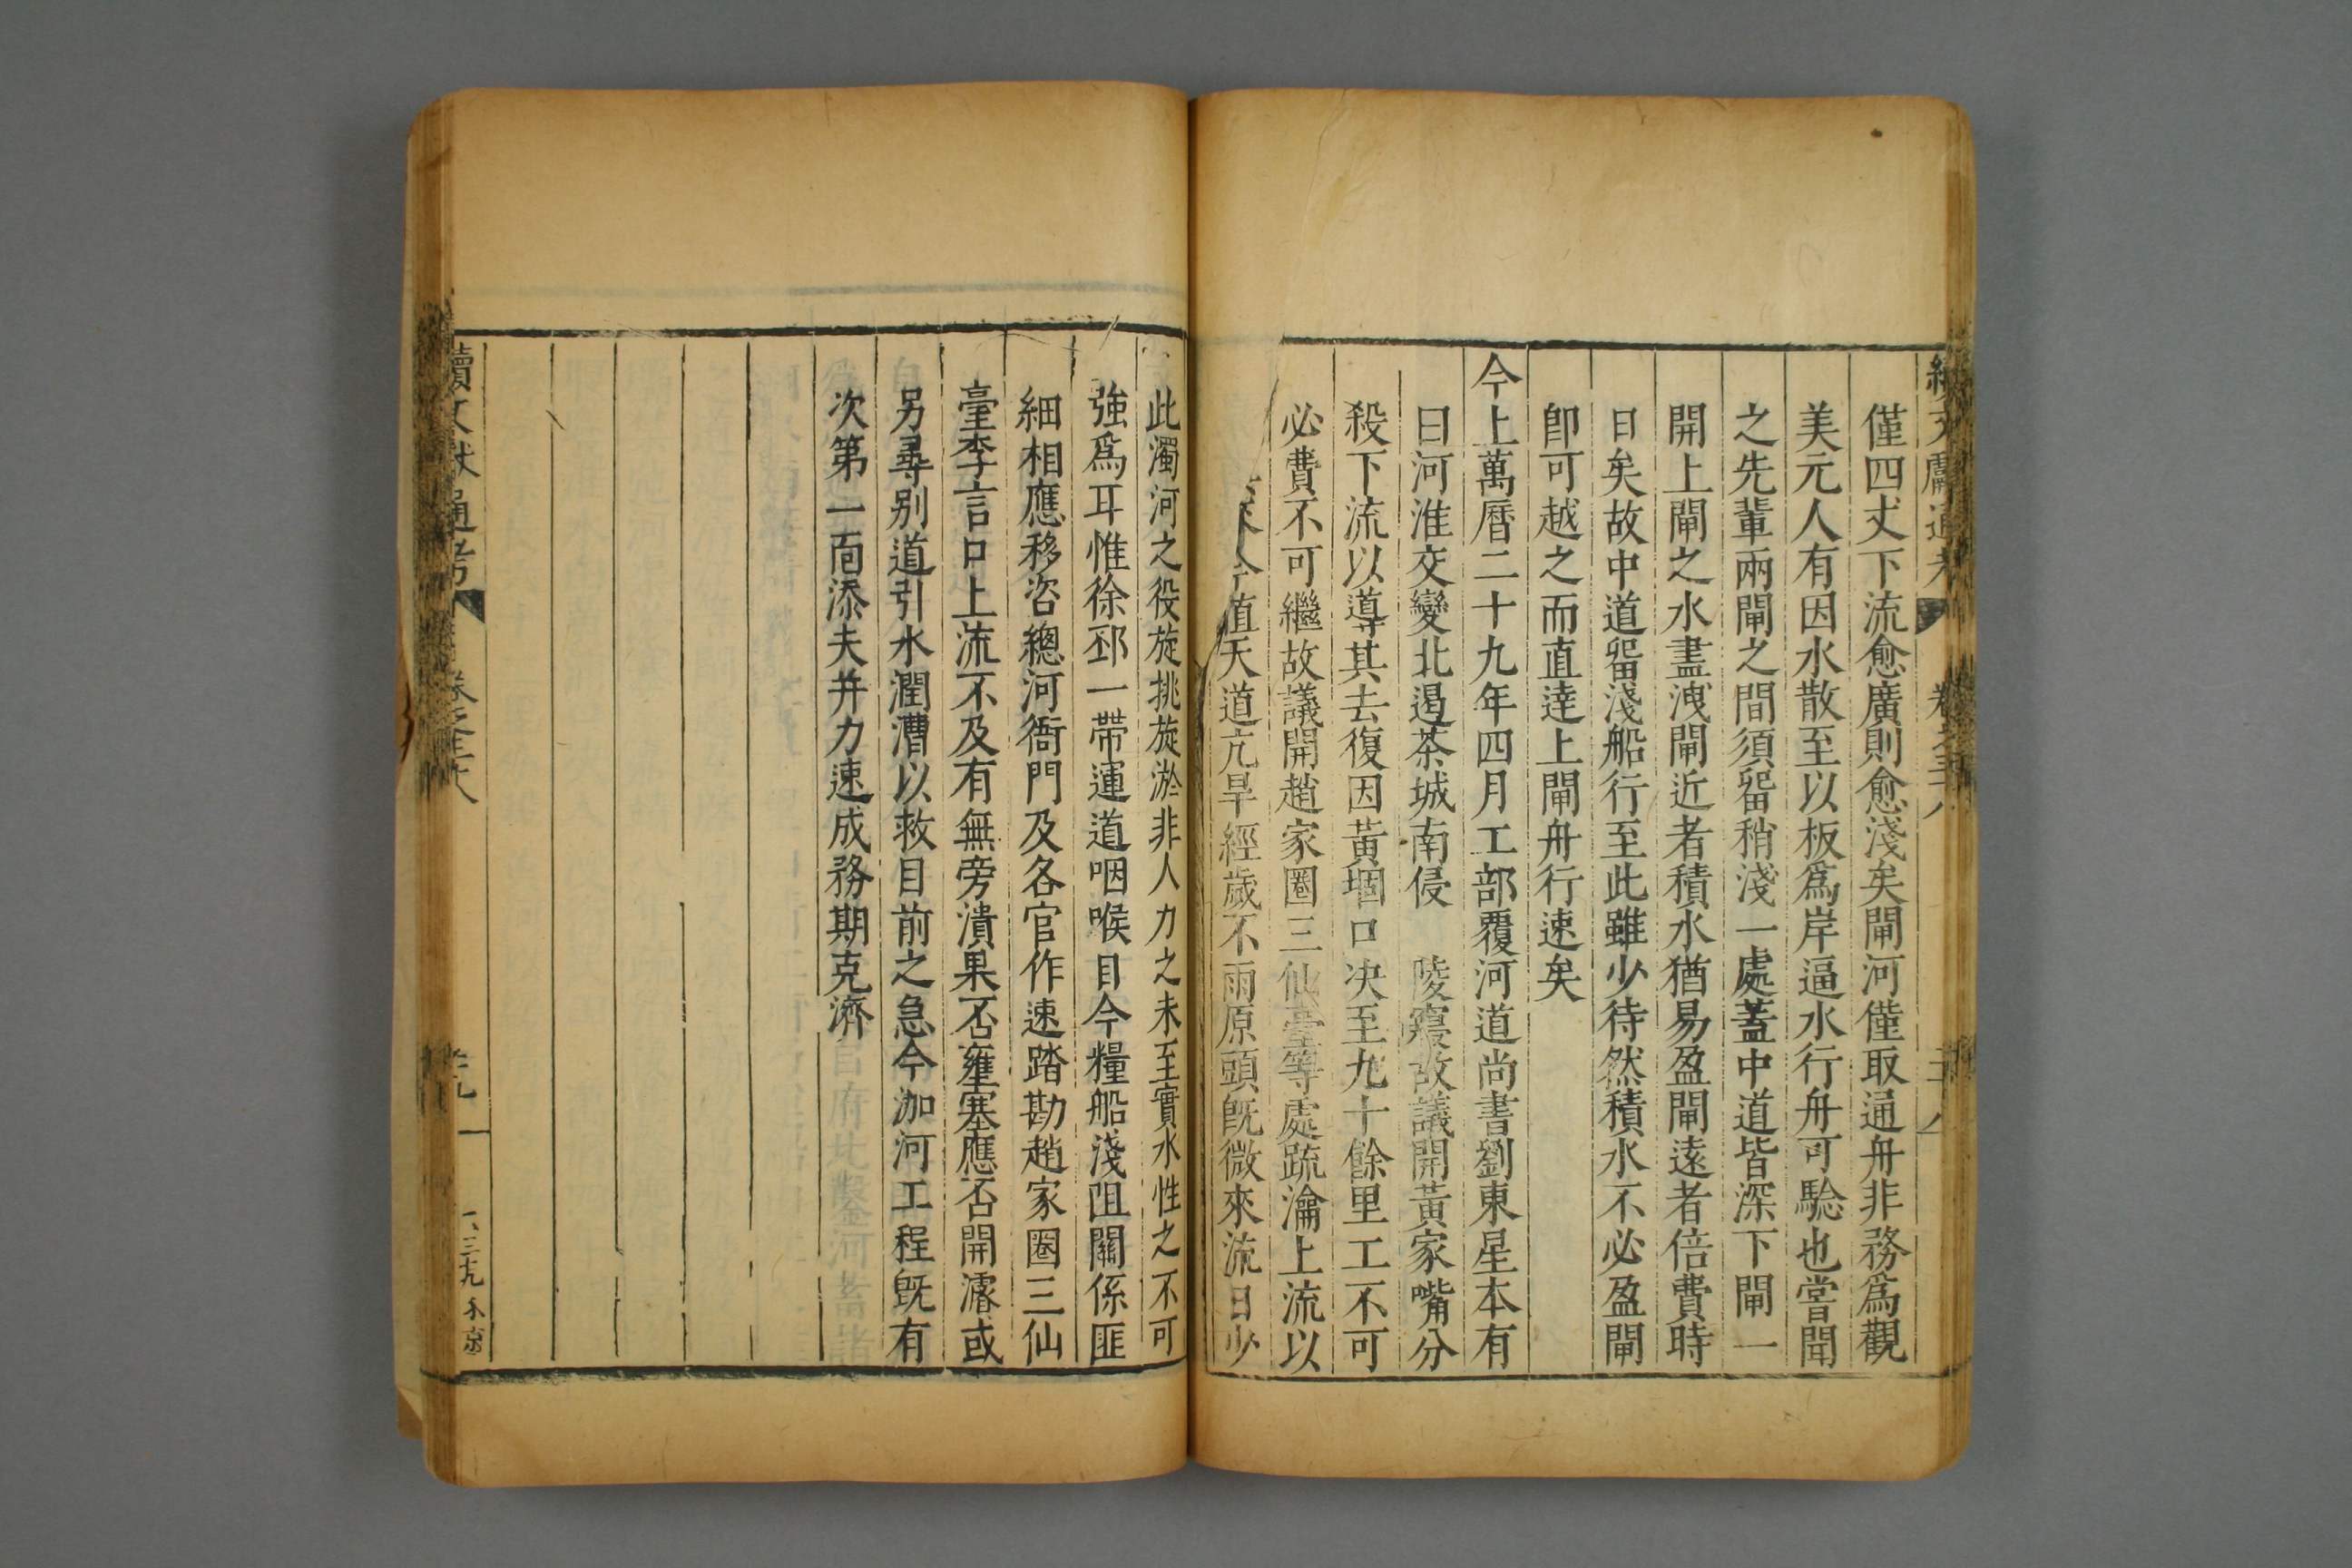 續文獻通考 卷之三十八
僅四丈下流愈廣則愈淺矣閘河僅取通舟非務爲觀
美元人有因水散至以板爲岸逼水行舟可騐也嘗聞
之先輩兩閘之間須畱稍淺一處葢中道皆深下閘一
開上閘之水盡洩閘近者積水猶易盈閘遠者倍費時
日矣故中道畱淺船行至此雖少待然積水不必盈閘
卽可越之而直逹上閘舟行速矣
今上萬曆二十九年四月工部覆河道尚書劉東星本有
曰河淮交變北遏茶城南侵 陵寢故議開黃家嘴分
殺下流以導其去復因黃堌口决至九十餘里工不可
必費不可繼故議開趙家圈三仙臺等處疏瀹上流以
值天道亢旱經歲不雨原頭旣微來流日少
此濁河之役旋挑旋淤非人力之未至實水性之不可
強爲耳惟徐邳一帶運道咽喉目今糧船淺阻關係匪
細相應移咨總河衙門及各官作速踏勘趙家圈三仙
臺李言口上流不及有無旁潰果否壅塞應否開濬或
另尋别道引水潤漕以救目前之急今泇河工程旣有
次第一面添夫并力速成務期克濟
續文獻通考 卷之三十八